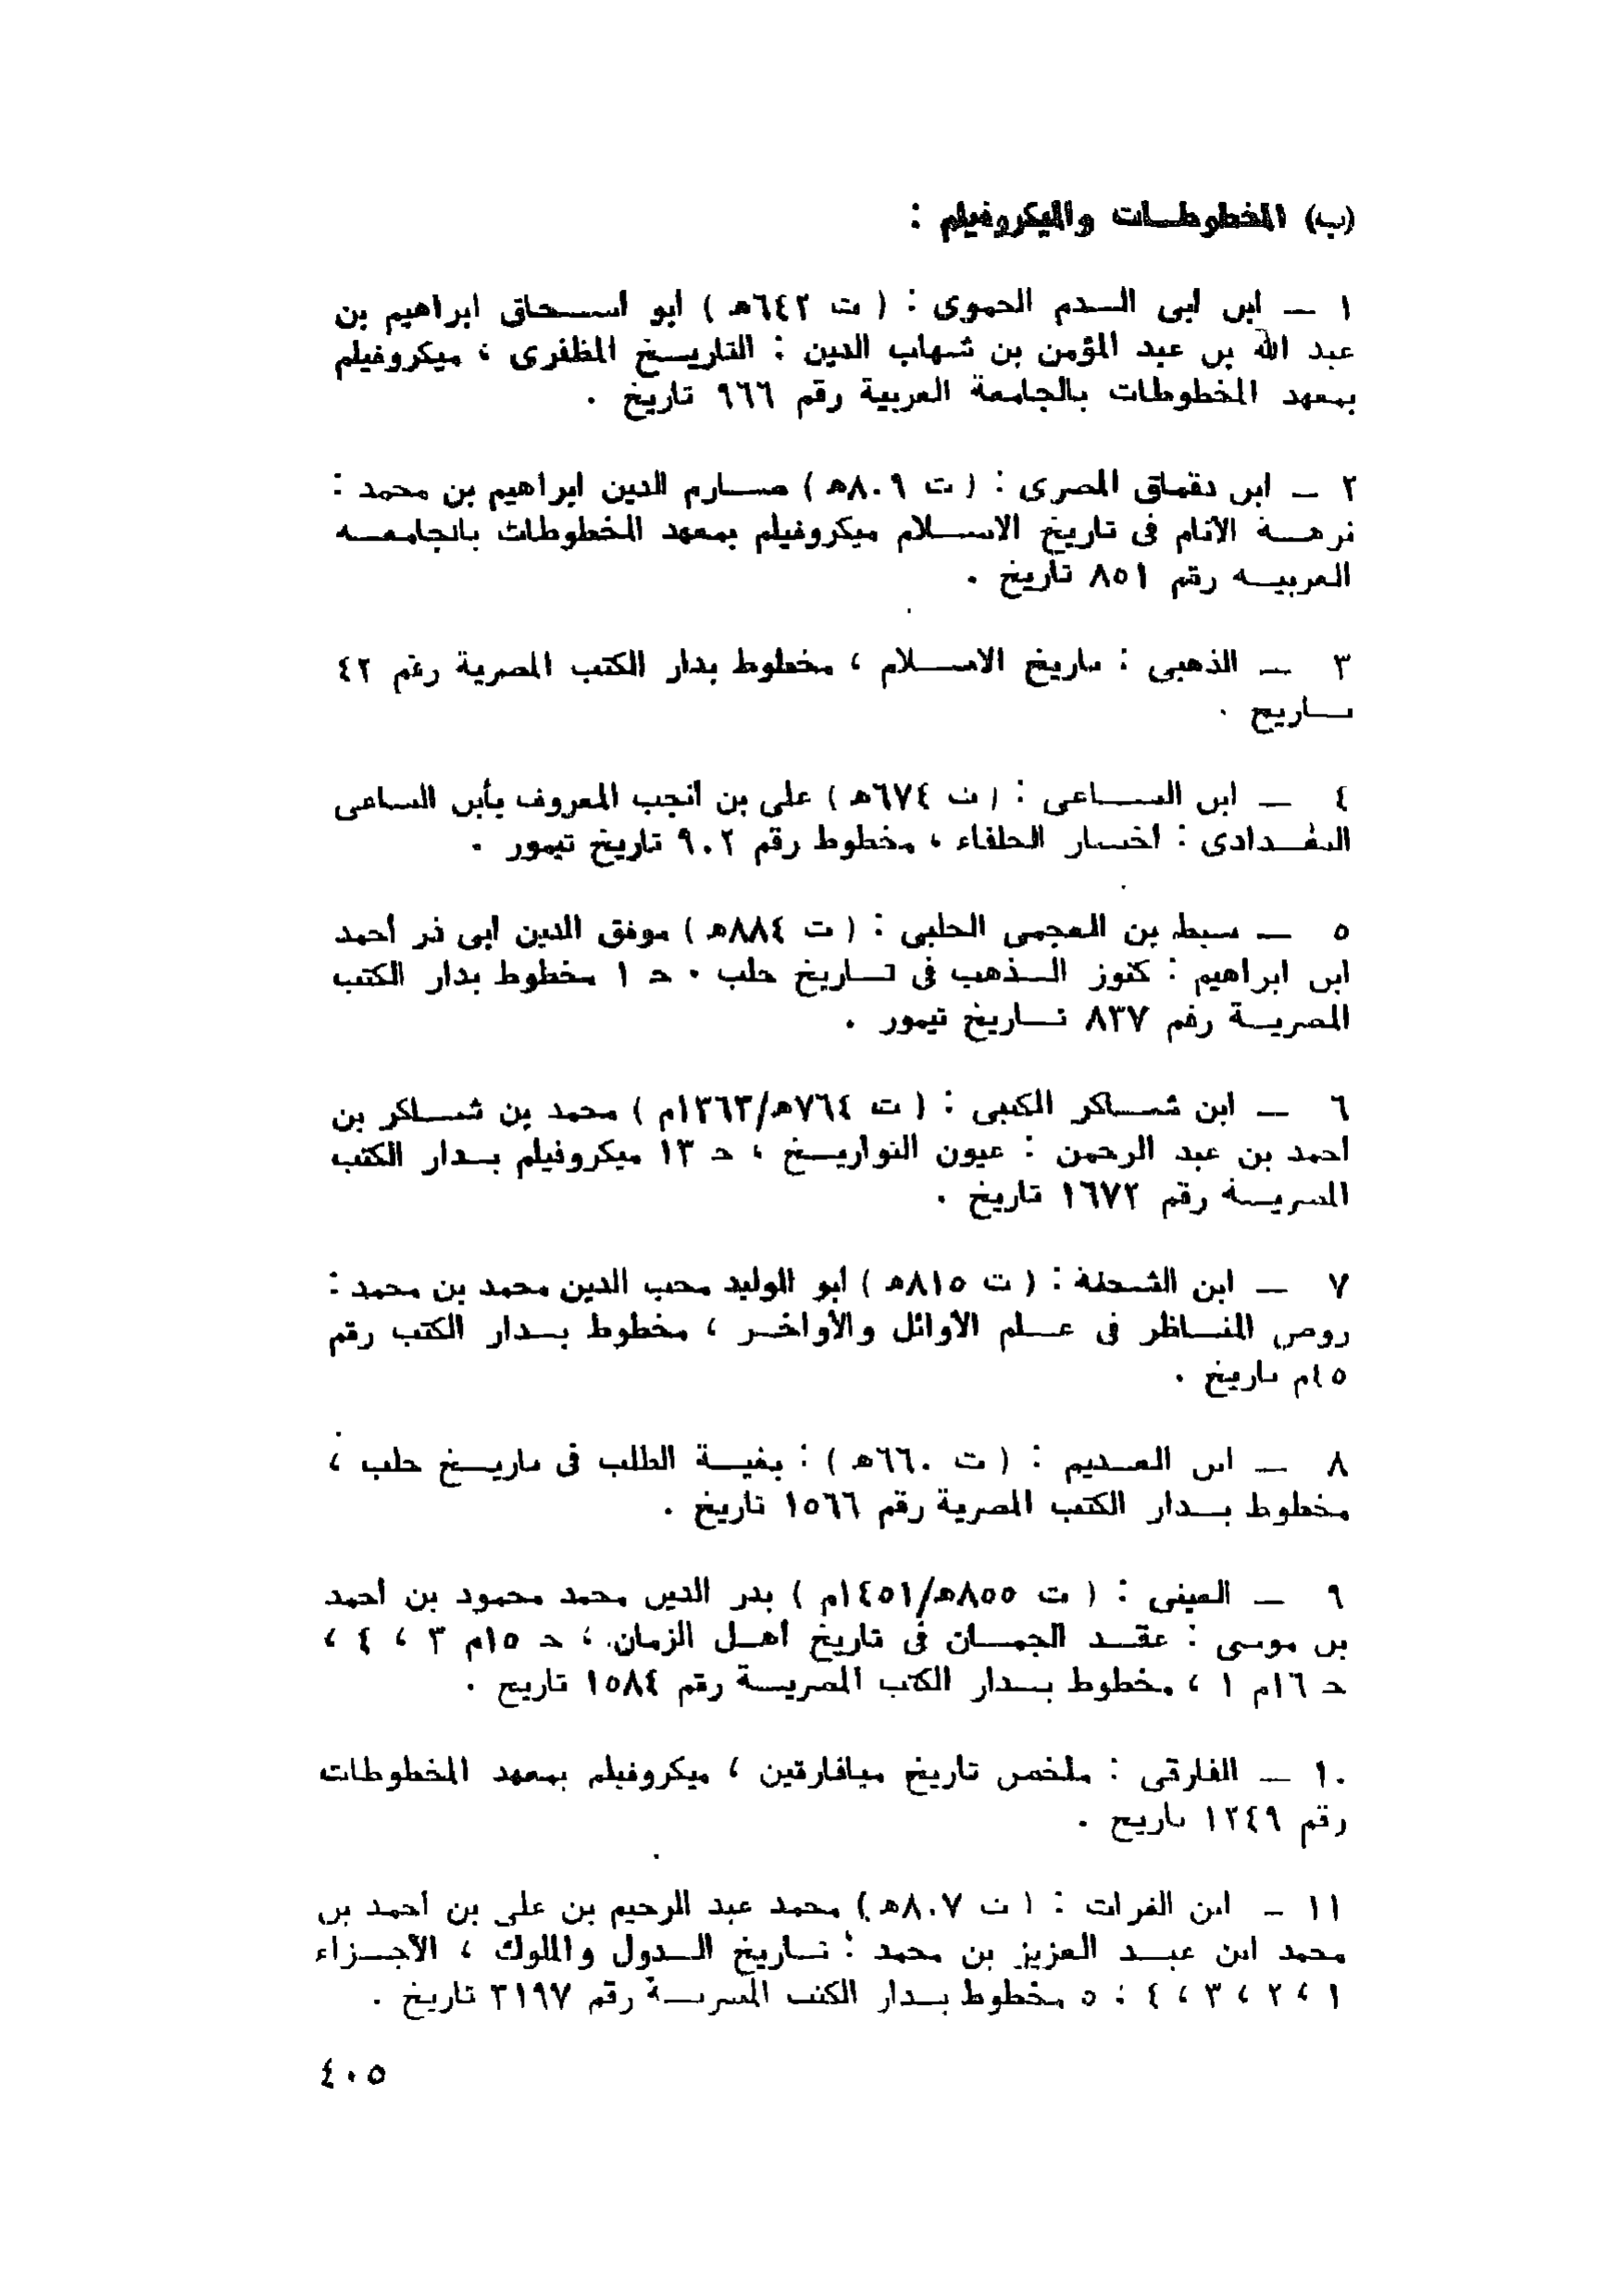 (ب) المخطوطات والميكروفيلم :
١ — ابن ابى الدم الحموى : ( ت ٦٤٢هـ ) أبو اسحاق ابراهيم بن
عبد الله بن عبد المؤمن بن شهاب الدين : التاريخ المظفرى ، ميكروفيلم
بمعهد المخطوطات بالجامعة العربية رقم ٩٦٦ تاريخ .
٢ — ابن دقماق المصرى : ( ت ٨٠٩هـ ) صارم الدين ابراهيم بن محمد :
نزهة الأنام فى تاريخ الاسلام ميكروفيلم بمعهد المخطوطات بالجامعه
العربيه رقم ٨٥١ تاريخ .
٣ — الذهبى : تاريخ الاسلام ، مخطوط بدار الكتب المصرية رقم ٤٢
تاريخ .
٤ — ابن الساعى : ( ت ٦٧٤هـ ) على بن أنجب المعروف بأبن الساعى
البغدادى : اخبار الخلفاء ، مخطوط رقم ٩٠٢ تاريخ تيمور .
٥ — سبط بن العجمى الحلبى : ( ت ٨٨٤هـ ) موفق الدين ابى ذر أحمد
ابن ابراهيم : كنوز الذهب فى تاريخ حلب . ج ١ مخطوط بدار الكتب
المصرية رقم ٨٣٧ تاريخ تيمور .
٦ — ابن شاكر الكتبى : ( ت ٧٦٤هـ/١٣٦٣م ) محمد بن شاكر بن
احمد بن عبد الرحمن : عيون التواريخ ، ج ١٣ ميكروفيلم بدار الكتب
المصرية رقم ١٦٧٢ تاريخ .
٧ — ابن الشحنة : ( ت ٨١٥هـ ) ابو الوليد محب الدين محمد بن محمد :
روض المناظر فى علم الأوائل والأواخر ، مخطوط بدار الكتب رقم
٤٥م تاريخ .
٨ — ابن العديم : ( ت ٦٦٠هـ ) : بغية الطلب فى تاريخ حلب ،
مخطوط بدار الكتب المصرية رقم ١٥٦٦ تاريخ .
٩ — العينى : ( ت ٨٥٥هـ/١٤٥١م ) بدر الدين محمد محمود بن أحمد
بن موسى : عقد الجمان فى تاريخ أهل الزمان ، ج ١٥م ٣ ، ٤ ،
ج ١٦م ١ ، مخطوط بدار الكتب المصرية رقم ١٥٨٤ تاريخ .
١٠ — الفارقى : ملخص تاريخ ميافارقين ، ميكروفيلم بمعهد المخطوطات
رقم ١٢٤٩ تاريخ .
١١ — ابن الفرات : ( ت ٨٠٧هـ ) محمد عبد الرحيم بن على بن أحمد بن
محمد ابن عبد العزيز بن محمد : تاريخ الدول والملوك ، الأجزاء
١ ، ٢ ، ٣ ، ٤ ، ٥ مخطوط بدار الكتب المصرية رقم ٣١٩٧ تاريخ .
٤٠٥